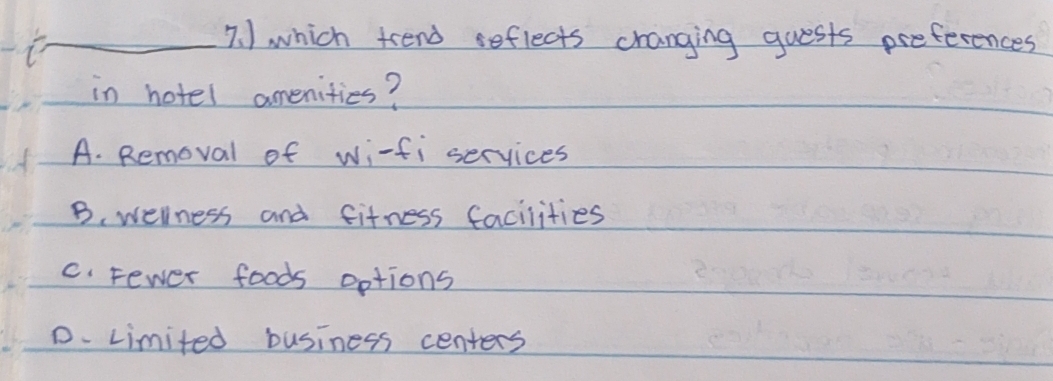 7.) which trend reflects changing guests preferences
in hotel amenities?
A. Removal of Wi-fi services
B. Wellness and fitness facilities
C. Fewer foods options
D. Limited business centers